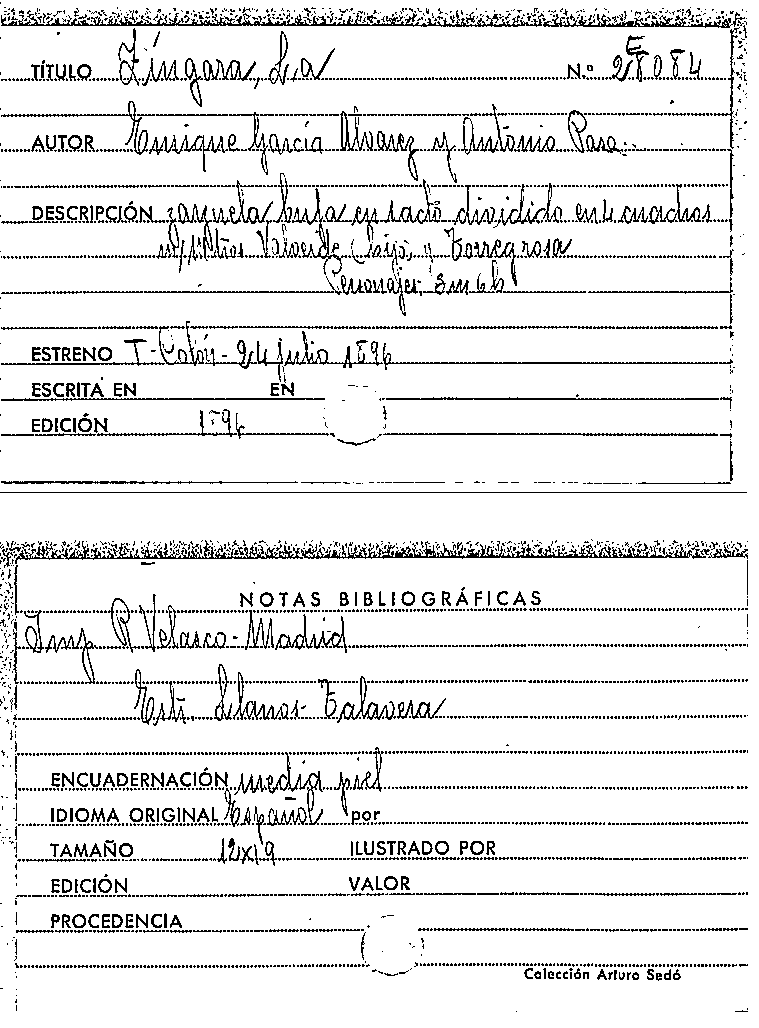 TÍTULO Zíngara, La N.º E 28084
AUTOR Enrique García Alvarez y Antonio Paso.
DESCRIPCIÓN zarzuela bufa en 1 acto dividido en 4 cuadros
Mtros Valverde (hijo) y Torregrosa
Personajes, 3m 6h
ESTRENO T-Colón-24 julio 1896
ESCRITA EN EN
EDICIÓN 1896
NOTAS BIBLIOGRÁFICAS
Imp R Velasco-Madrid
Estr. Llanos-Talavera
ENCUADERNACIÓN media piel
IDIOMA ORIGINAL Español por
TAMAÑO 12x19 ILUSTRADO POR
EDICIÓN VALOR
PROCEDENCIA
Colección Arturo Sedó